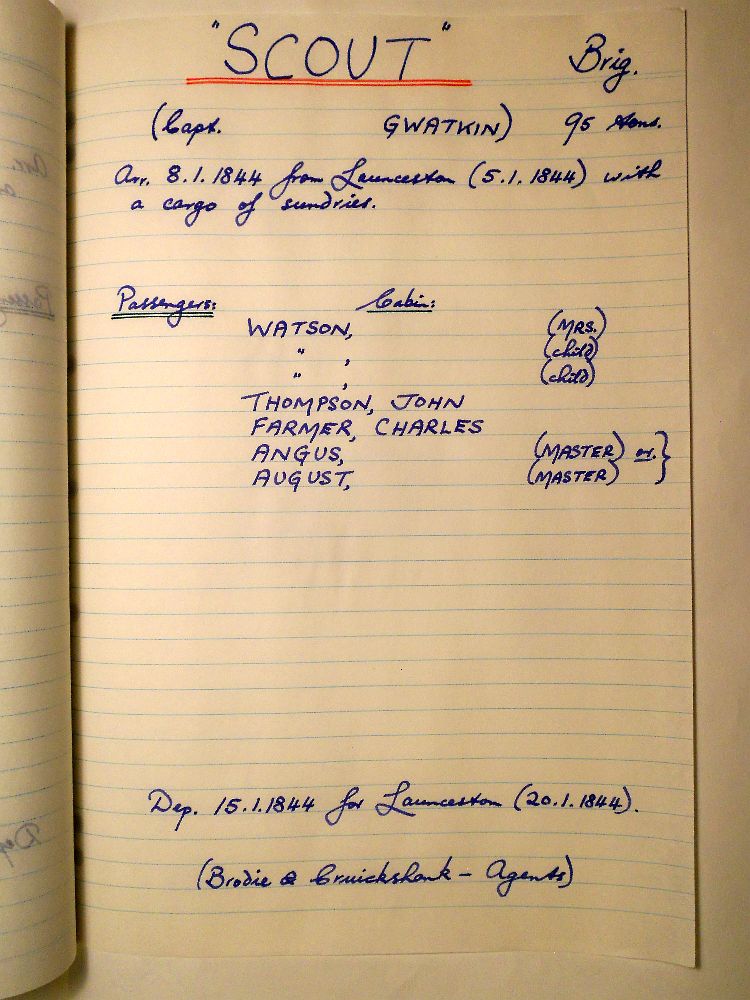 "SCOUT" Brig.
(Capt. GWATKIN) 95 tons.
Arr. 8.1.1844 from Launceston (5.1.1844) with
a cargo of sundries.
Passengers: Cabin:
WATSON, (MRS.)
" , (child)
" , (child)
THOMPSON, JOHN
FARMER, CHARLES
ANGUS, (MASTER) or }
AUGUST, (MASTER)
Dep. 15.1.1844 for Launceston (20.1.1844).
(Brodie & Cruickshank - Agents)